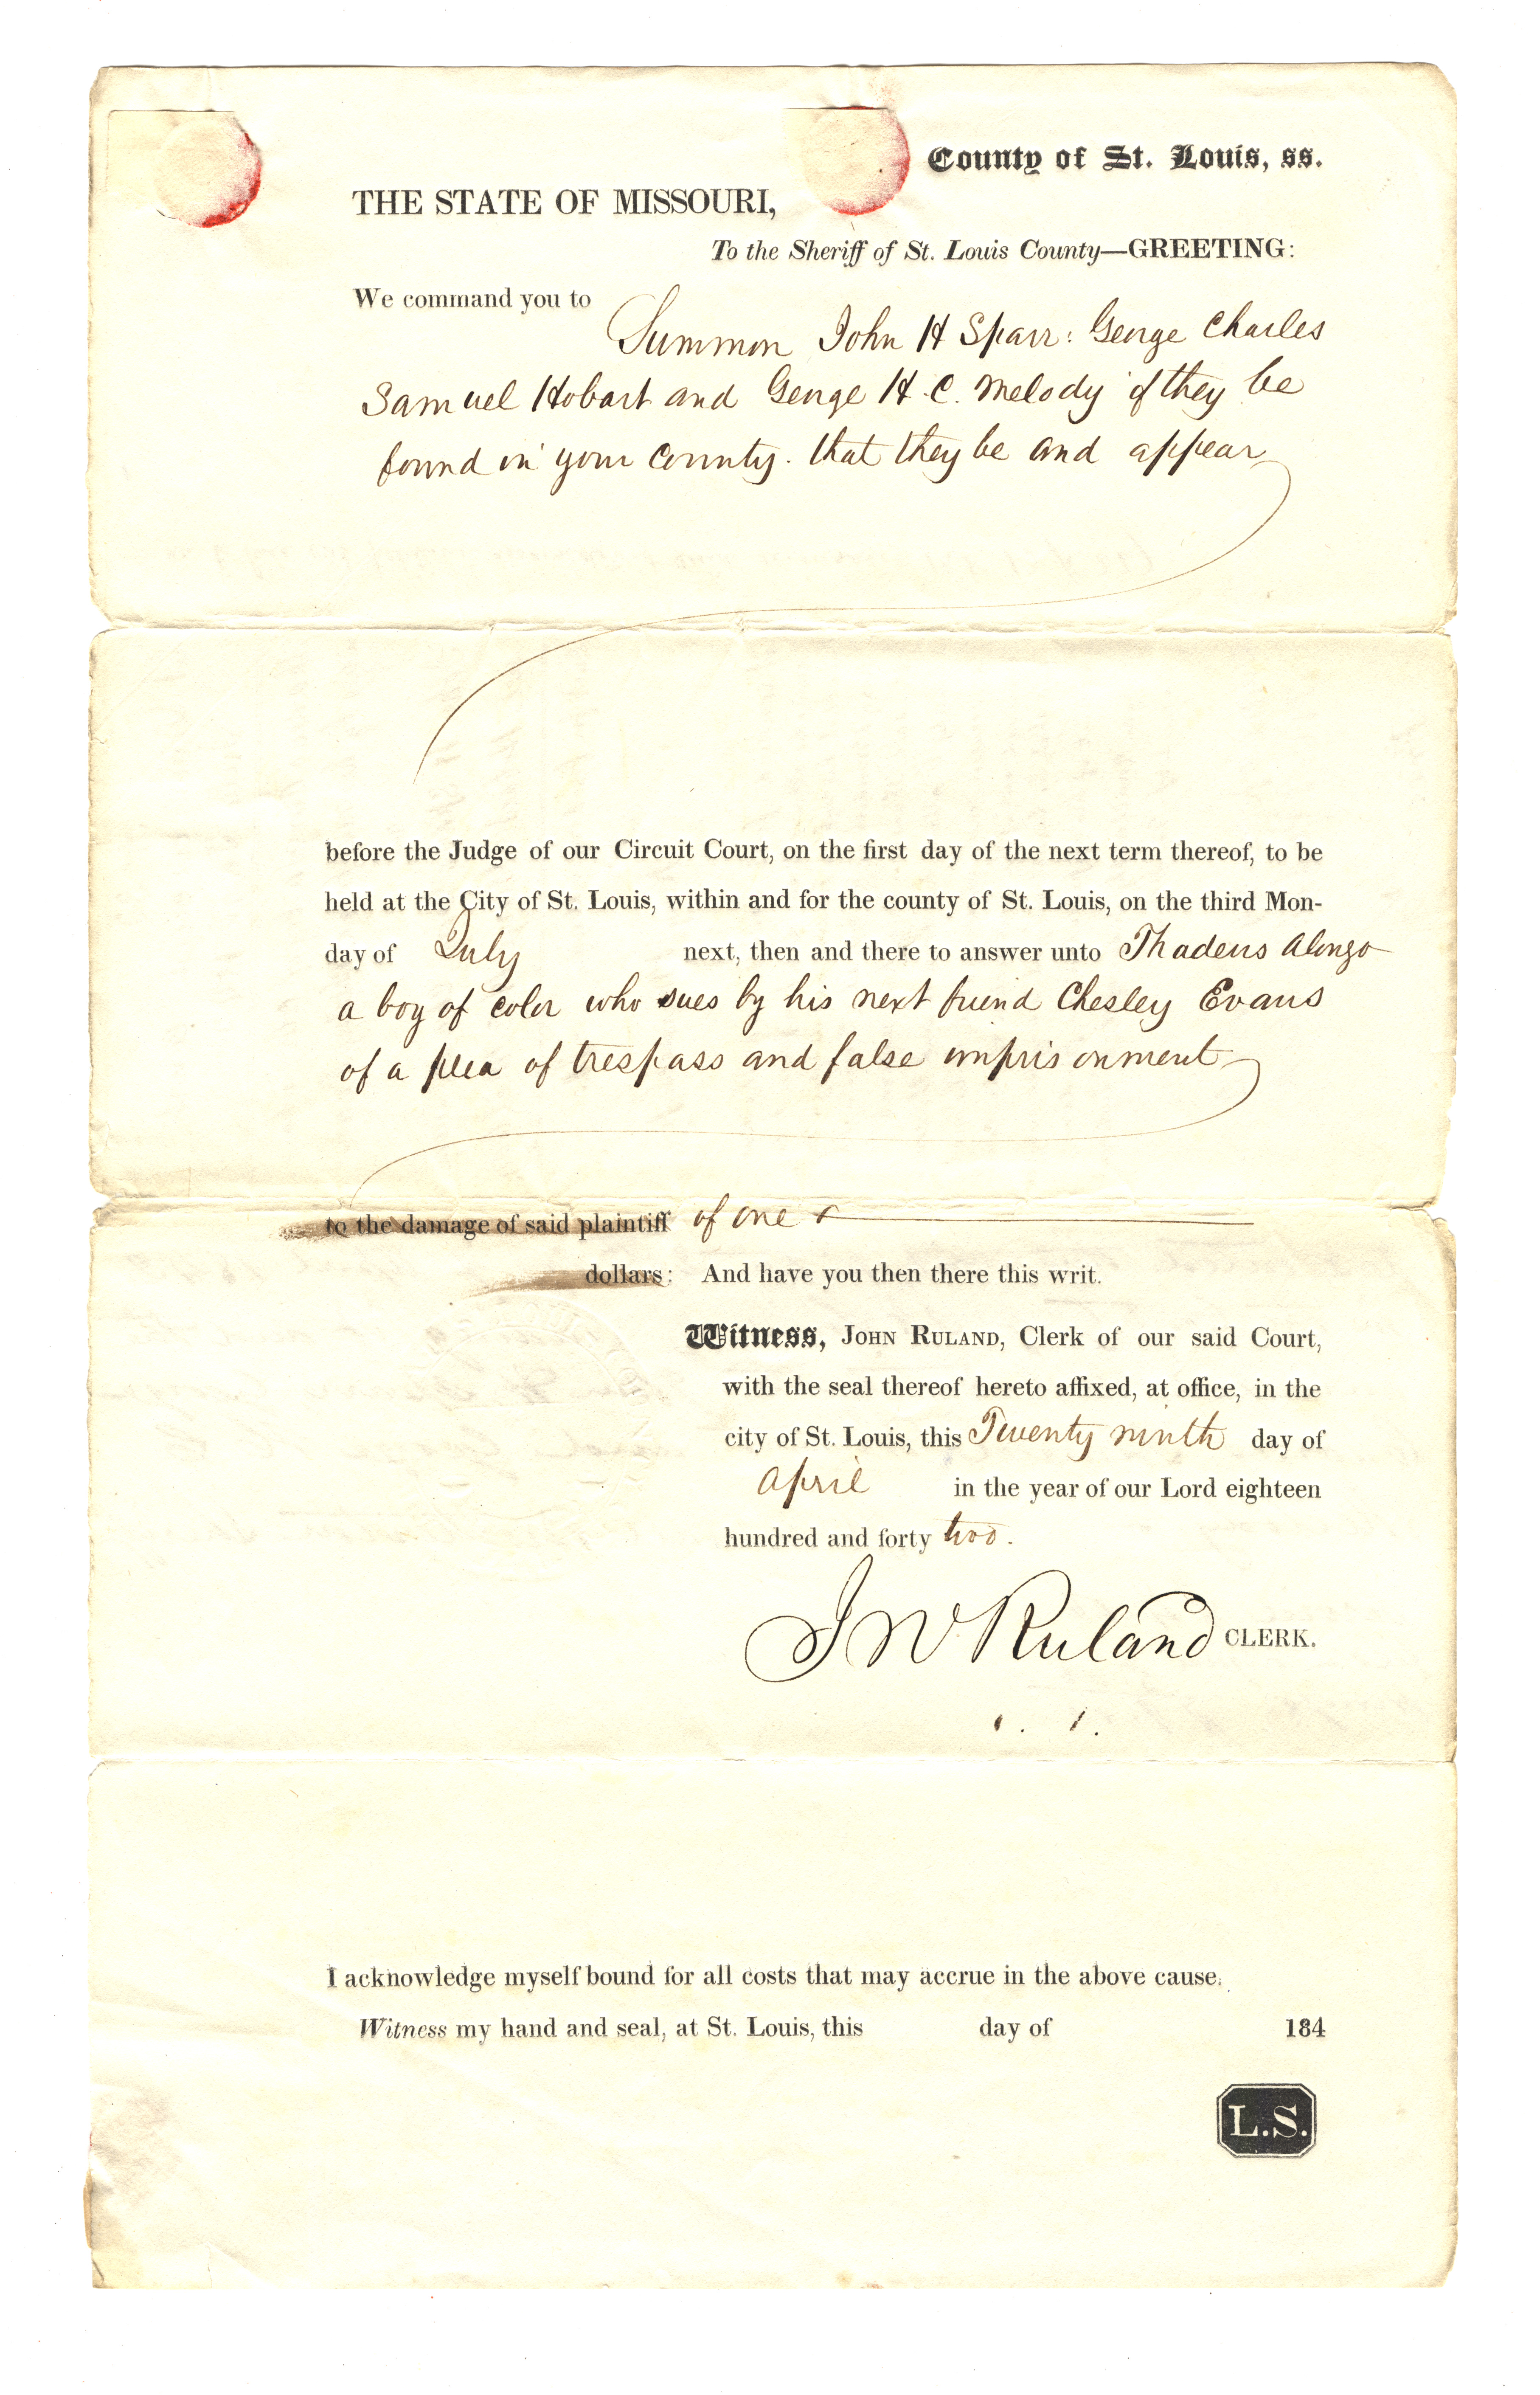 County of St. Louis, ss.
THE STATE OF MISSOURI,
To the Sheriff of St. Louis County—GREETING:
We command you to
Summon John H Sparr: George Charles
Samuel Hobart and George H. C. Melody if they be
found in your County. that they be and appear
before the Judge of our Circuit Court, on the first day of the next term thereof, to be
held at the City of St. Louis, within and for the county of St. Louis, on the third Mon-
day of July next, then and there to answer unto Thadeus Alonzo
a boy of color who sues by his next friend Chesley Evans
of a plea of trespass and false imprisonment
to the damage of said plaintiff of one
dollars: And have you then there this writ.
Witness, JOHN RULAND, Clerk of our said Court,
with the seal thereof hereto affixed, at office, in the
city of St. Louis, this Twenty ninth day of
April in the year of our Lord eighteen
hundred and forty two.
J W Ruland CLERK.
I acknowledge myself bound for all costs that may accrue in the above cause.
Witness my hand and seal, at St. Louis, this day of 184
L.S.